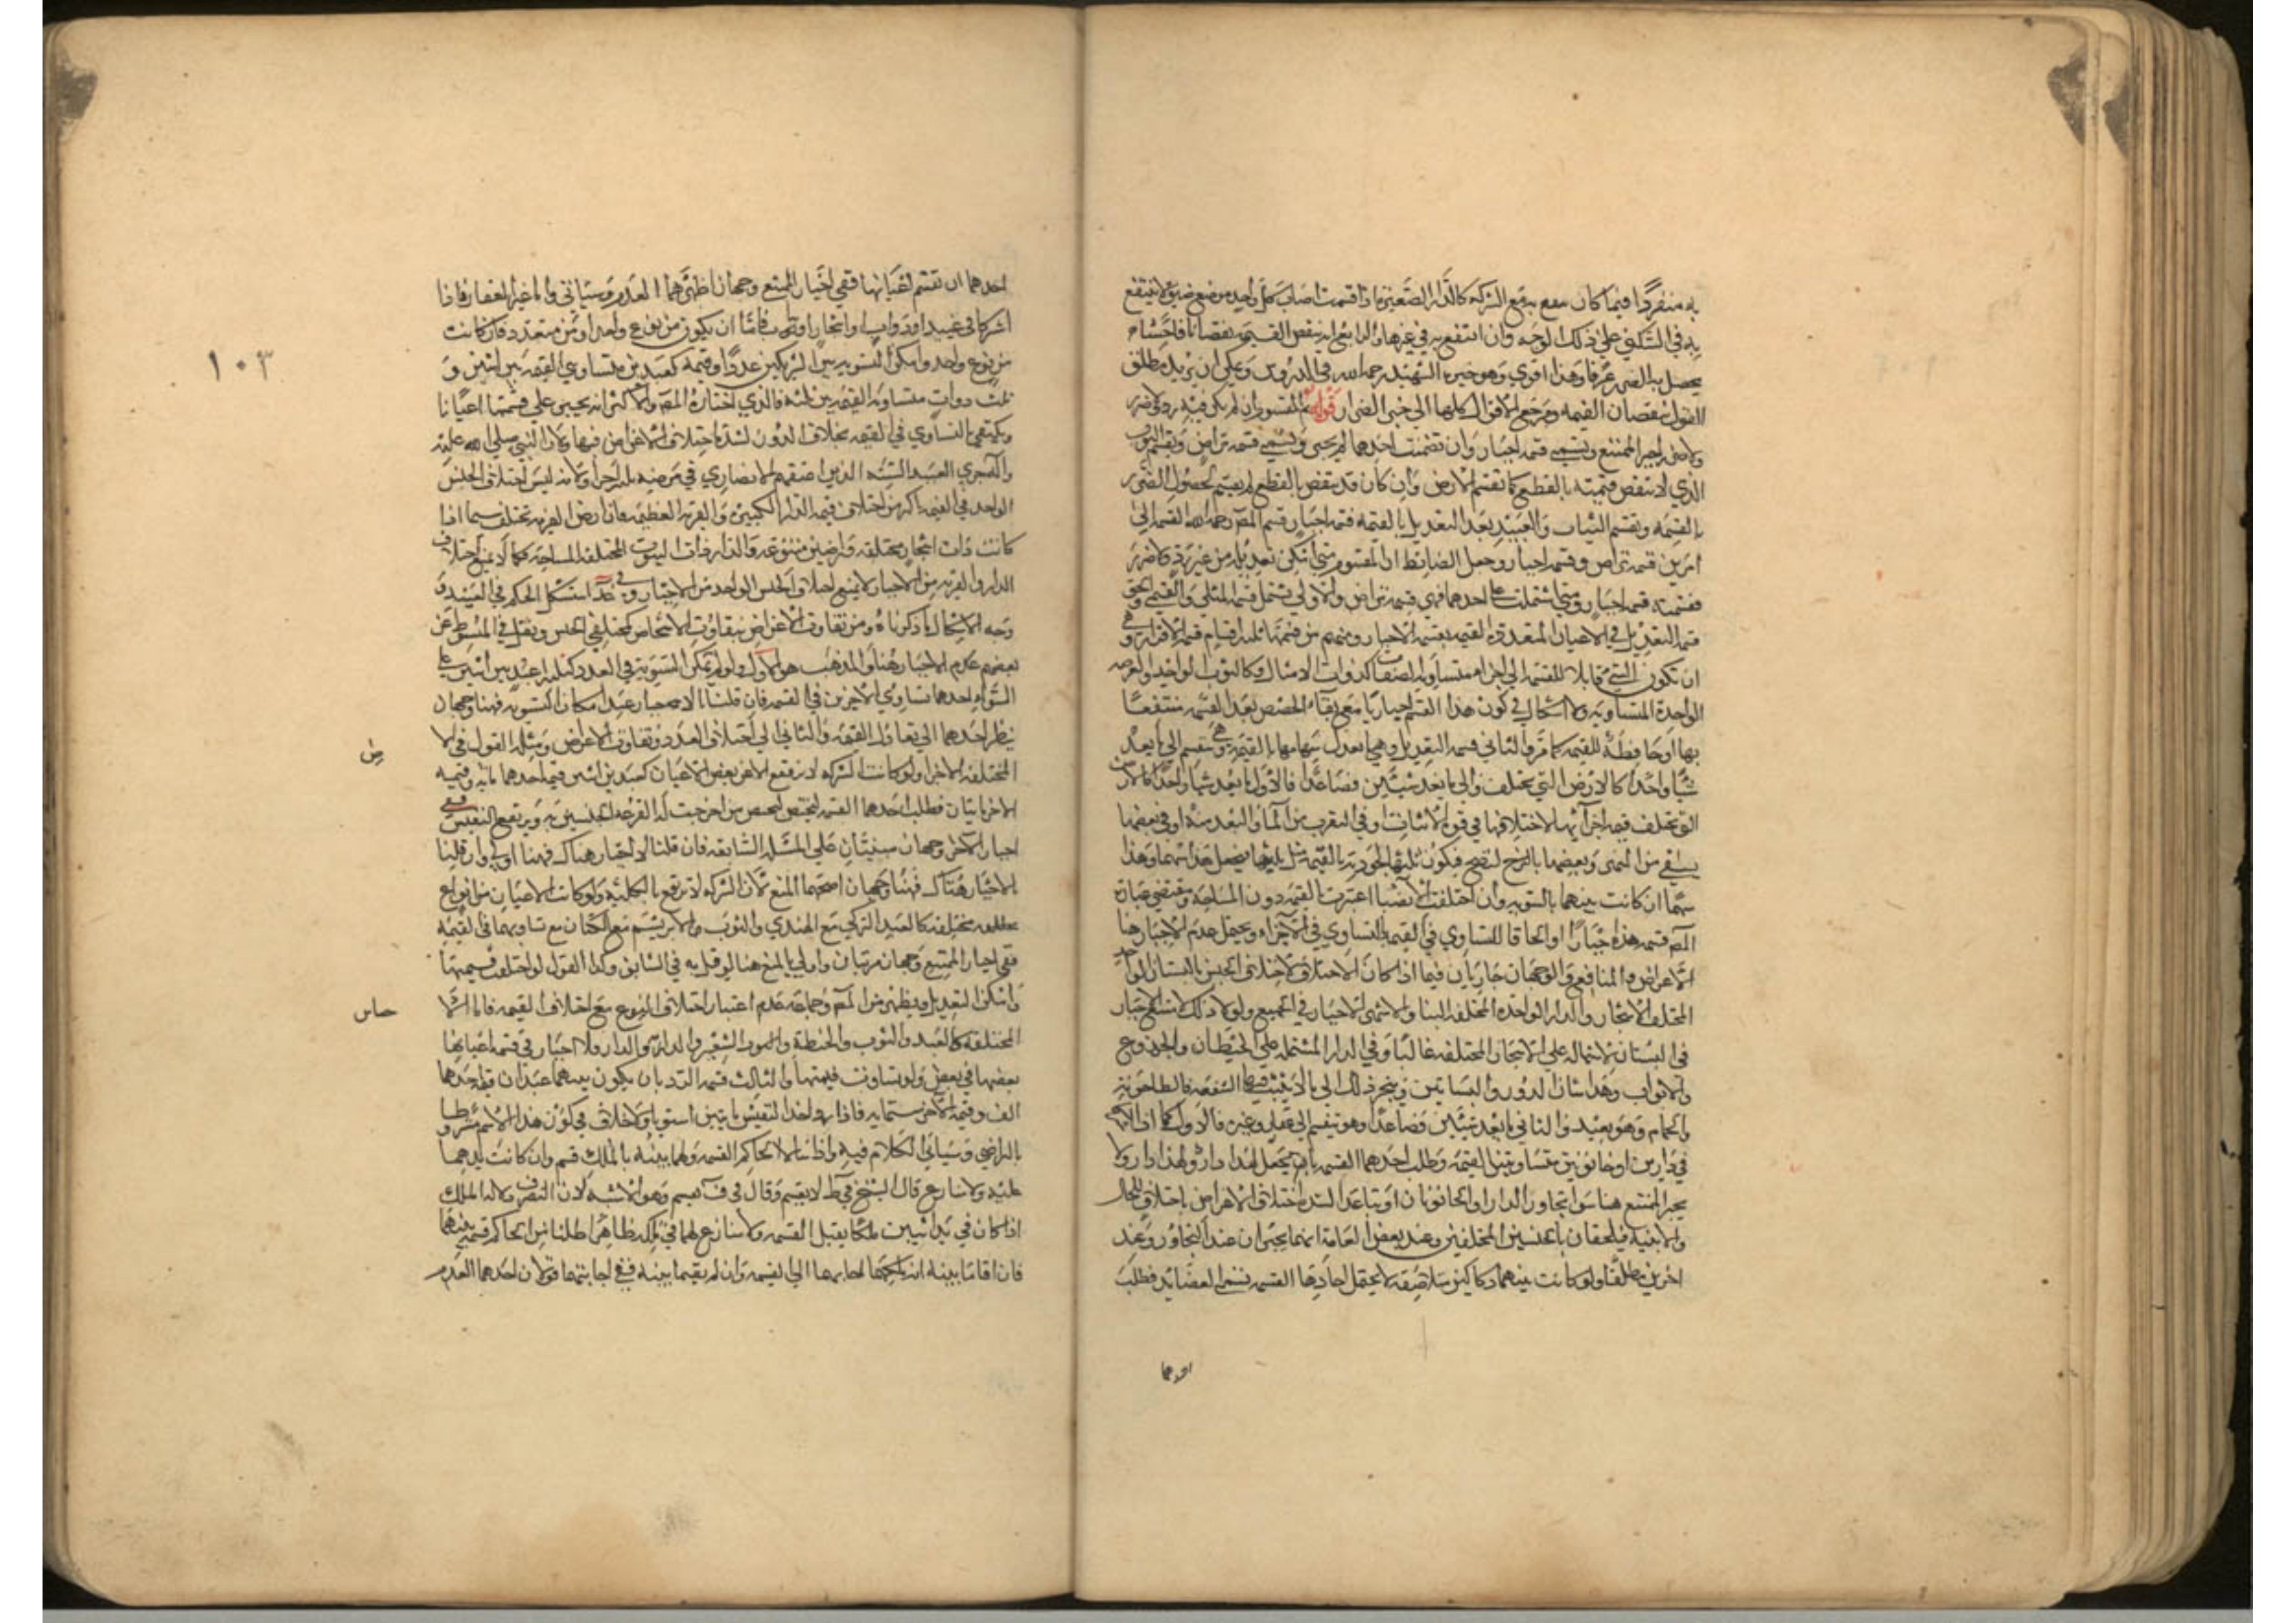 به منفردا فيما كان ينتفع به مع الشركة كالدار الصغيرة اذا قسمت اصاب كل واحد موضع ضيق لا ينتفع
به في السكنى على ذلك الوجه وان انتفع به في غيرها والرابع ان ينقص القيمة نقصانا فاحشا
يحصل به الضرر عرفا وهذا اقوى وهو خيرة الشهيد رحمه الله في الدروس ويمكن ان يريد مطلق
القول بنقصان القيمه ومرجع الاقوال كلها الى الضرار قوله ثم المقسوم ان لم يكن فيه رد ولا ضرر
ولا ضرر اجبر الممتنع ويسمى قسمه اجبار وان تضمنت احدهما لم يجبر ويسمى قسمه تراض ويقسم الثوب
الذي لا ينقص قيمته بالقطع كما تقسم الارض وان كان قد ينقص بالقطع لم يقسم لحصول الضرر
بالقسمه وتقسم الثياب والعبيد بعد التعديل بالقيمه قسمه اجبار قسم المصـ رحمه الله القسمه الى
امرين قسمه تراض وقسمه اجبار وجعل الضابط ان المقسوم متى امكن تعديله من غير رد ولا ضرر
فقسمته قسمه اجبار ومتى اشتملت على احدهما فهي قسمه تراض والاولى تشمل قسمه المثلي والقيمي والحق
قسمه التعديل في الاعيان المتعدده القيمه بقسمه الاجبار ومنهم من قسمها ثلثه اقسام قسمه الافراز وهي
ان تكون الشي قابلا للقسمه الى اجزاء متساويه الصفات كذوات الامثال وكالثوب الواحد والعرصه
الواحدة المتساويه ولا اشكال في كون هذا القسم اجباريا مع بقاء الحصص بعد القسمه منتفعا
بها او حافظة للقيمه كما مر والثاني قسمه التعديل وهي ما تعدل سهامها بالقيمه وهي تنقسم الى ما يعد
شيا واحدا كالارض التي تختلف والى ما يعد شيئين فصاعدا فالاول ما يعد شيا واحدا كالارض
التي تختلف قيمه اجزائها لاختلافها في قوة الانبات او في القرب من الماء والبعد منه او في بعضها
يسقى من النهر وبعضها بالنرح لنضح فيكون ثلثها لجودته بالقيمه مثل ثلثيها فيجعل هذا سهما وهذا
سهما ان كانت بينهما بالسويه وان اختلفت الانصبا اعتبرت القيمه دون المساحه ومقتضى عبارة
المصـ قسمه هذه جبارا او الحاقا للتساوي في القيمه بالتساوي في الاجزاء ويحتمل عدم الاجبار هنا
الاغراض والمنافع والوجهان جاريان فيما اذا كان الاختلاف لاختلاف الجنس كالبستان الواحد
المختلف الاشجار والدار الواحده المختلفه البنا والاشهر الاجبار في الجميع ولولا ذلك لامتنع الاجبار
في البستان لاشتماله على الاشجار المختلفه غالبا وفي الدار المشتمله على الحيطان والجذوع
والابواب وهذا شان الدور والبساتين وينجر ذلك الى ما لا يثبت فيها الشفعه كالطاحونه
والحمام وهو بعيد والثاني ما يعد شيئين فصاعدا وهو ينقسم الى عقار وغيره فالاول كما اذا اشتركا
في دارين او حانوتين متساويتي القيمه وطلب احدهما القسمه بان يجعل لهذا دار ولهذا دار ولا
يجبر الممتنع هنا سوا تجاور الداران والحانوتان او تباعدا لشدة اختلاف الاغراض باختلاف المحال
والابنيه فيلحقان بالجنسين المختلفين وعند بعض العامة انهما يجبران عند التجاور وعند
اخرين مطلقا ولو كانت بينهما دكاكين متلاصقه لا يحتمل احادها القسمه تسمى العضايد فطلب
احدهما
١٠٣
احدهما ان تقسم اعيانها ففي اجبار الممتنع وجهان اظهرهما العدم وسياتي واما غير العقار فاذا
اشتركا في عبيد او دواب او اشجار او ثياب فاما ان يكون من نوع واحد او من متعدد فان كانت
من نوع واحد وامكن التسويه بين الشريكين عددا وقيمه كعبدين متساويي القيمه بين اثنين و
ثلث دواب متساويه القيمه بين ثلثه فالذي اختاره المصـ والاكثر انه يجبر على قسمتها اعيانا
ويكتفى بالتساوي في القيمه بخلاف الدور لشدة اختلاف الاغراض فيها ولان النبي صلى الله عليه
واله جزى العبيد الستة الذين اعتقهم الانصاري في مرضه ثلثه اجزا ولانه ليس اختلاف الجنس
الواحد في القيمه باكثر من اختلاف قيمه الدار الكبيرة والقريه العظيمه فان ارض القريه تختلف سيما اذا
كانت ذات اشجار مختلفه واراضين متنوعه والدار ذات البيوت المختلفه المساحه كما لا يمنع اختلاف
الدار والقريه من الاجبار لا يمنع اختلاف الجنس الواحد من الاجبار وفي عد استشكل الحكم في العبيد و
وجه الاشكال ما ذكرناه ومن تفاوت الاغراض بتفاوت الاشخاص كمختلفي الجنس ونقل في المبسوط عن
بعضهم عدم الاجبار هنا والمذهب هو الاول ولو لم يمكن التسويه في العدد كثلثه اعبد بين اثنين على
السواء احدهما يساوي الاخرين في القيمه فان قلنا بالاجبار عند امكان التسويه فهنا وجهان
ينظر احدهما الى تعادل القيمه والثاني الى اختلاف العدد وتفاوت الاغراض ومثله القول في الا
ض
المختلفه الاجزاء ولو كانت الشركه لا ترتفع الا عن بعض الاعيان كعبدين بين اثنين قيمه احدهما مائه وقيمه
الاخر مايتان فطلب احدهما القسمه ليختص من خرجت له القرعه بالخسيس به وبربع النفيس ففي
اجبار الاخر وجهان مبنيان على المسئله السابقه فان قلنا لا اجبار هناك فهنا اولى وان قلنا
بالاجبار هناك فهنا وجهان اصحهما المنع لان الشركه لا ترتفع بالكليه ولو كانت الاعيان من انواع
مختلفه كالعبد التركي مع الهندي والثوب الابريشم مع الكتان مع تساويهما في القيمه
ففي اجبار الممتنع وجهان مرتبان واولى بالمنع هنا لو قيل به في السابق وكذا القول لو اختلفت قيمتها
وامكن التعديل ويظهر من المصـ وجماعه عدم اعتبار اختلاف النوع مع اختلاف القيمه فاما الا
جناس
المختلفه كالعبد والثوب والحنطه والشعير والدابه والدار فلا اجبار في قسمه اعيانها
بعضها في بعض ولو تساوت قيمتها والثالث قسمه الرد بان يكون بينهما عبدان قيمه احدهما
الف وقيمه الاخر ستمايه فاذا رد اخذ النفيس مايتين استويا ولا خلاف في كون هذا القسم مشروطا
بالتراضي وسياتي الكلام فيه واذا سالا الحاكم القسمه ولهما بينه بالملك قسم وان كانت يدهما
عليه ولا منازع قال الشيخ في ط لا يقسم وقال في ف يقسم وهو الاشبه لان التصرف دلاله الملك
اذا كان في يد اثنين ملك يقبل القسمه ولا منازع لهما في ملكه ظاهرا طلبا من الحاكم قسمته بينهما
فان اقاما بينه انه ملكهما اجابهما الى القسمه وان لم يقيما بينه ففي اجابتهما قولان احدهما العدم